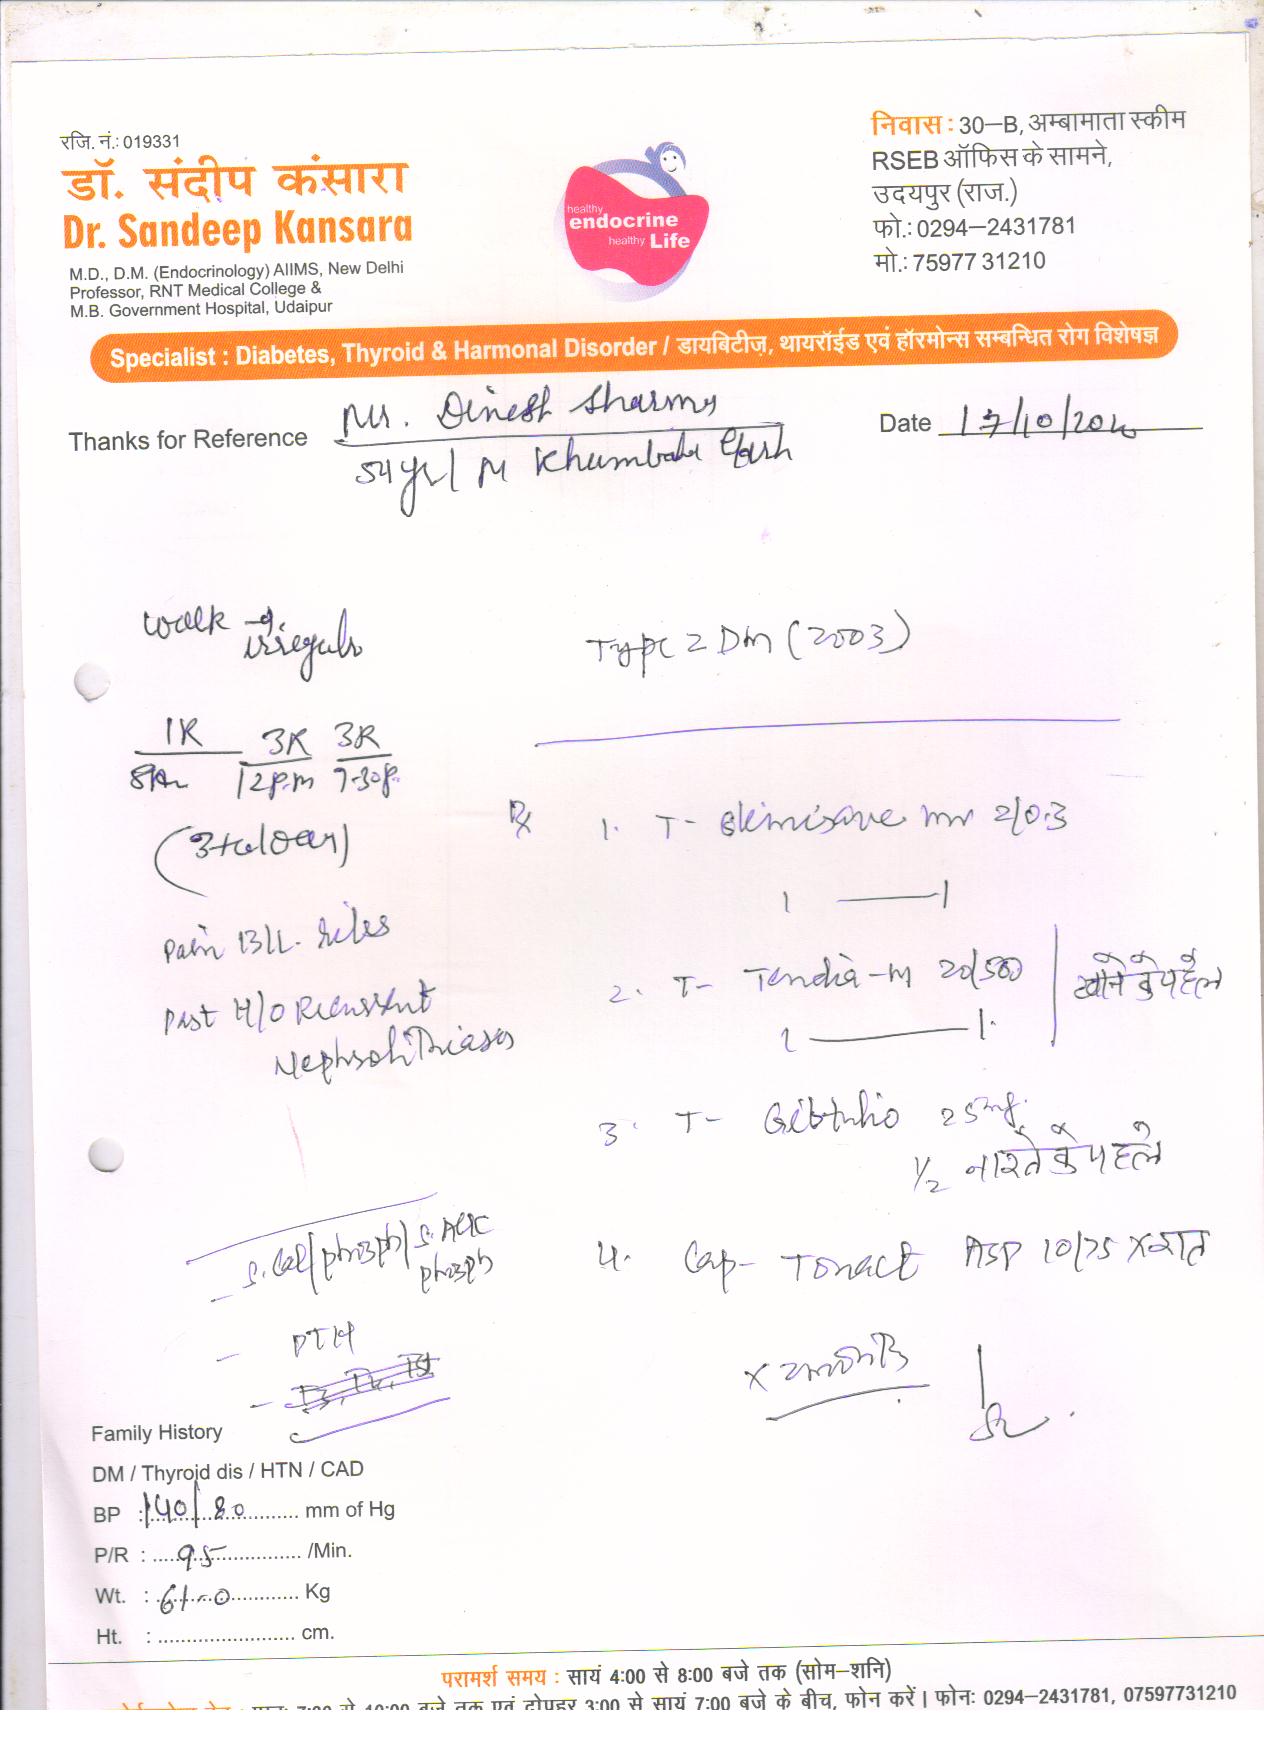 रजि. नं.: 019331
डॉ. संदीप कंसारा
Dr. Sandeep Kansara
M.D., D.M. (Endocrinology) AIIMS, New Delhi
Professor, RNT Medical College &
M.B. Government Hospital, Udaipur
healthy
endocrine
healthy Life
निवास : 30–B, अम्बामाता स्कीम
RSEB ऑफिस के सामने,
उदयपुर (राज.)
फो.: 0294–2431781
मो.: 75977 31210
Specialist : Diabetes, Thyroid & Harmonal Disorder / डायबिटीज़, थायरॉईड एवं हॉरमोन्स सम्बन्धित रोग विशेषज्ञ
Thanks for Reference Mr. Dinesh Sharma
Date 17/10/20
54 yr/ M
Walk → irregular
Type 2 DM (2003)
1R 3R 3R
8Am 12p.m 7.30p.
Rx 1. T- mv 2/0.3
1 —— 1
Pain B/L.
Past H/O Recurrent
Nephrolithiasis
2. T- Tendia-M 20/500 खाने के पहले
1 —— 1.
3. T- 25mg.
1/2 नाश्ते के पहले
S. Cal/phosph/S. Alk
phosph
4. Cap- Tonact ASP 10/75 x रात
- PTH
x 2 months
- T3, T4, TSH
Family History
DM / Thyroid dis / HTN / CAD
BP : 140/80 mm of Hg
P/R : 95 /Min.
Wt. : 61.0 Kg
Ht. : cm.
परामर्श समय : सायं 4:00 से 8:00 बजे तक (सोम–शनि)
7:00 से 10:00 बजे तक एवं दोपहर 3:00 से सायं 7:00 बजे के बीच, फोन करें। फोन: 0294–2431781, 07597731210